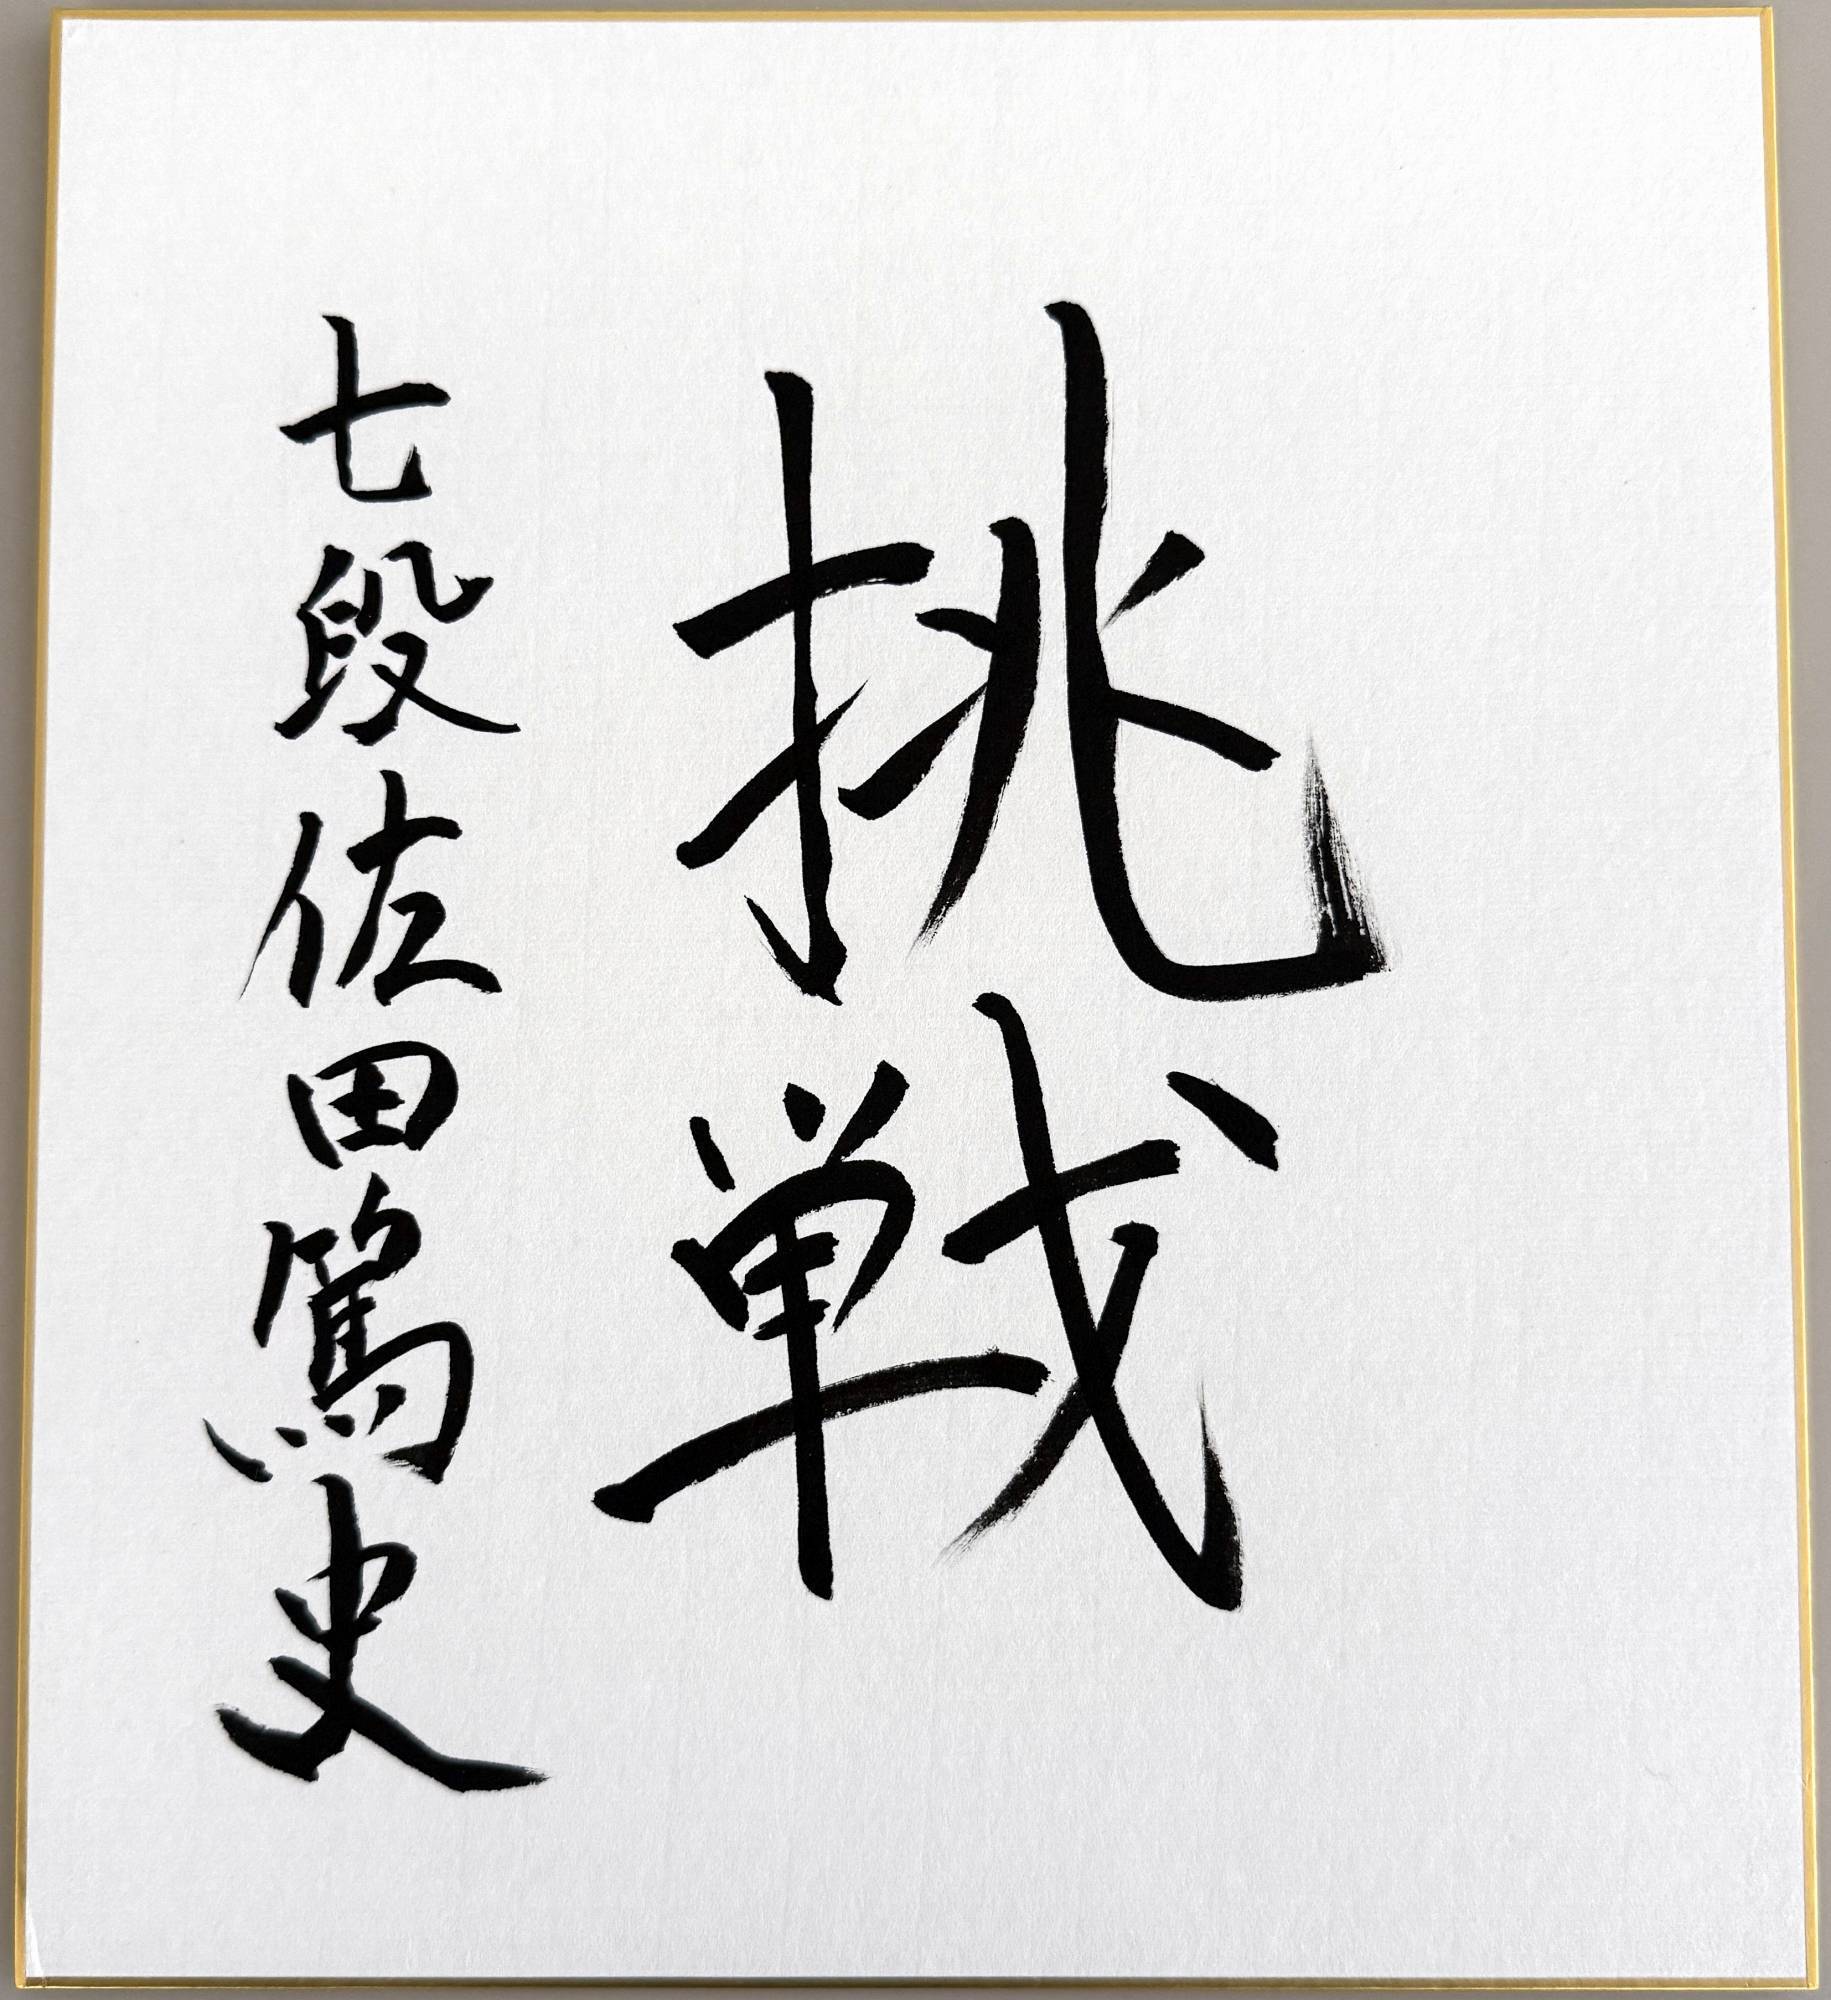 挑戦
七段佐田篤史